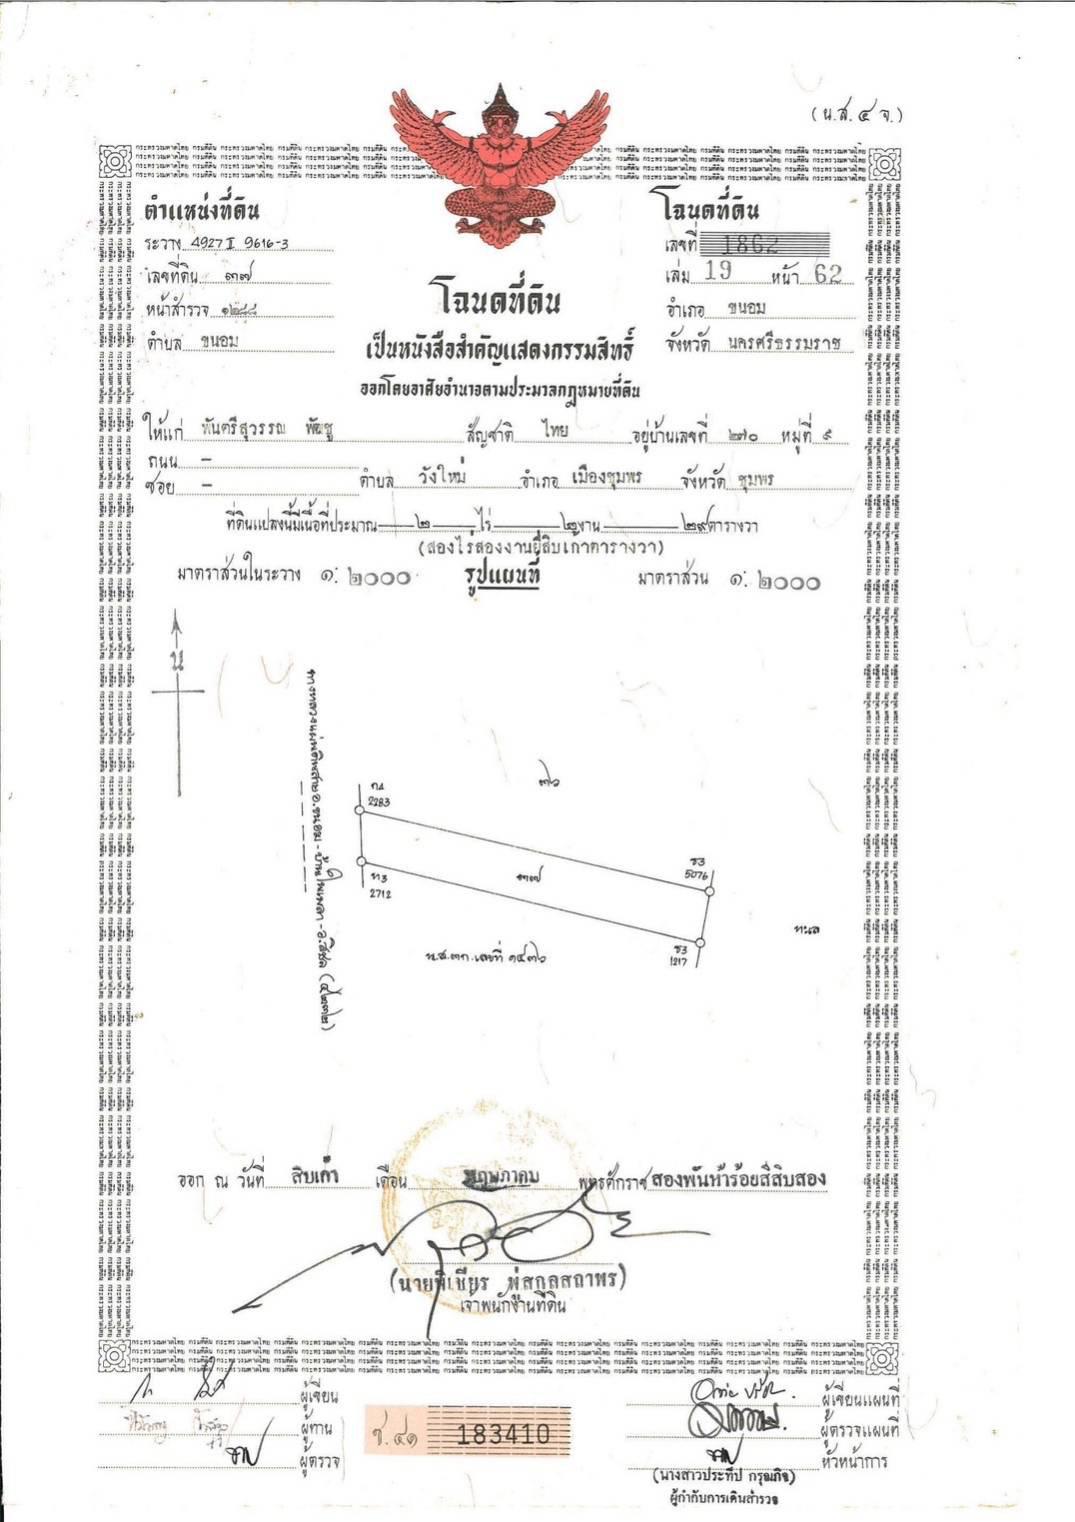 (น.ส.๔ จ.)
ตำแหน่งที่ดิน
ระวาง 4927 II 9616-3
เลขที่ดิน ๓๗
หน้าสำรวจ ๑๒๘๘
ตำบล ขนอม
โฉนดที่ดิน
เลขที่ 1862
เล่ม 19 หน้า 62
อำเภอ ขนอม
จังหวัด นครศรีธรรมราช
โฉนดที่ดิน
เป็นหนังสือสำคัญแสดงกรรมสิทธิ์
ออกโดยอาศัยอำนาจตามประมวลกฎหมายที่ดิน
ให้แก่ พันตรีสุวรรณ พัฒชู สัญชาติ ไทย อยู่บ้านเลขที่ ๒๗๐ หมู่ที่ ๙
ถนน –
ซอย – ตำบล วังใหม่ อำเภอ เมืองชุมพร จังหวัด ชุมพร
ที่ดินแปลงนี้มีเนื้อที่ประมาณ ๒ ไร่ ๒ งาน ๒๙ ตารางวา
(สองไร่สองงานยี่สิบเก้าตารางวา)
มาตราส่วนในระวาง ๑: ๒๐๐๐ รูปแผนที่ มาตราส่วน ๑: ๒๐๐๐
น
ทางหลวงแผ่นดินสาย อ.ขนอม - บ้านในเพลา - อ.สิชล (๔๒๓๒)
๓๖
ก4
2283
ท3
2712
๓๗
ซ3
5076
ซ3
1217
ทะเล
น.ส.๓ก.เลขที่ ๑๔๓๖
ออก ณ วันที่ สิบเก้า เดือน พฤษภาคม พุทธศักราช สองพันห้าร้อยสี่สิบสอง
(นายพิเชียร พู่สกุลสถาพร)
เจ้าพนักงานที่ดิน
ผู้เขียน
ผู้ทาน
ผู้ตรวจ
ช.๔๑ 183410
ผู้เขียนแผนที่
ผู้ตรวจแผนที่
หัวหน้าการ
(นางสาวประทีป กรุณกิจ)
ผู้กำกับการเดินสำรวจ